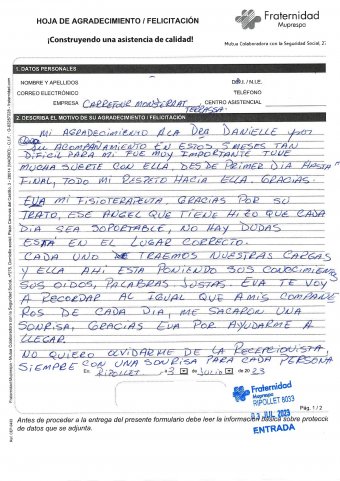 HOJA DE AGRADECIMIENTO / FELICITACIÓN
Fraternidad
Muprespa
¡Construyendo una asistencia de calidad!
Mutua Colaboradora con la Seguridad Social, 27
1. DATOS PERSONALES
NOMBRE Y APELLIDOS
D.N.I. / N.I.E.
CORREO ELECTRÓNICO
TELÉFONO
EMPRESA CARREFOUR MONTSERRAT
TERRASSA
CENTRO ASISTENCIAL
2. DESCRIBA EL MOTIVO DE SU AGRADECIMIENTO / FELICITACIÓN
MI AGRADECIMIENTO A LA DRA DANIELLE
SU ACOMPAÑAMIENTO EN ESTOS 5 MESES TAN
DIFICIL PARA MI FUE MUY IMPORTANTE TUVE
MUCHA SUERTE CON ELLA, DESDE PRIMER DIA HASTA
FINAL, TODO MI RESPETO HACIA ELLA. GRACIAS.
EVA MI FISIOTERAPEUTA, GRACIAS POR SU
TRATO, ESE ANGEL QUE TIENE HIZO QUE CADA
DIA SEA SOPORTABLE, NO HAY DUDAS
ESTA EN EL LUGAR CORRECTO.
CADA UNO TRAEMOS NUESTRAS CARGAS
Y ELLA AHI ESTA PONIENDO SUS CONOCIMIENTOS
SUS OIDOS, PALABRAS JUSTAS. EVA TE VOY
A RECORDAR AL IGUAL QUE A MIS COMPAÑE
ROS DE CADA DIA, ME SACARON UNA
SONRISA, GRACIAS EVA POR AYUDARME A
LLEGAR.
NO QUIERO OLVIDARME DE LA RECEPCIONISTA,
SIEMPRE CON UNA SONRISA PARA CADA PERSONA
En RIPOLLET, a 3 de Julio de 2023
Fraternidad
Muprespa
RIPOLLET 8033
03 JUL 2023
ENTRADA
Pág. 1 / 2
Antes de proceder a la entrega del presente formulario debe leer la información básica sobre protecció
de datos que se adjunta.